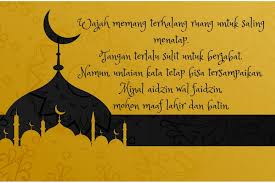 Wajah memang terhalang ruang untuk saling
menatap.
Tangan terlalu sulit untuk berjabat.
Namun, untaian kata tetap bisa tersampaikan.
Minal aidzin wal faidzin,
mohon maaf lahir dan batin.